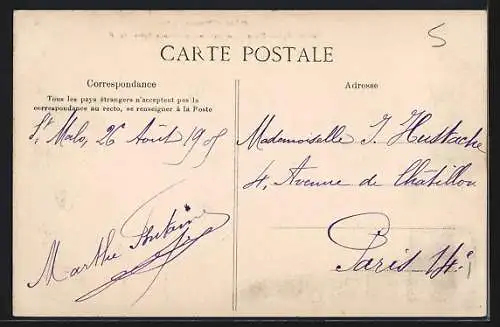 5
CARTE POSTALE
Correspondance
Tous les pays étrangers n'acceptent pas la
correspondance au recto, se renseigner à la Poste
St Malo, 26 Août 1905
Marthe
Adresse
Mademoiselle J. Hustache
4, Avenue de Châtillon
Paris 14e